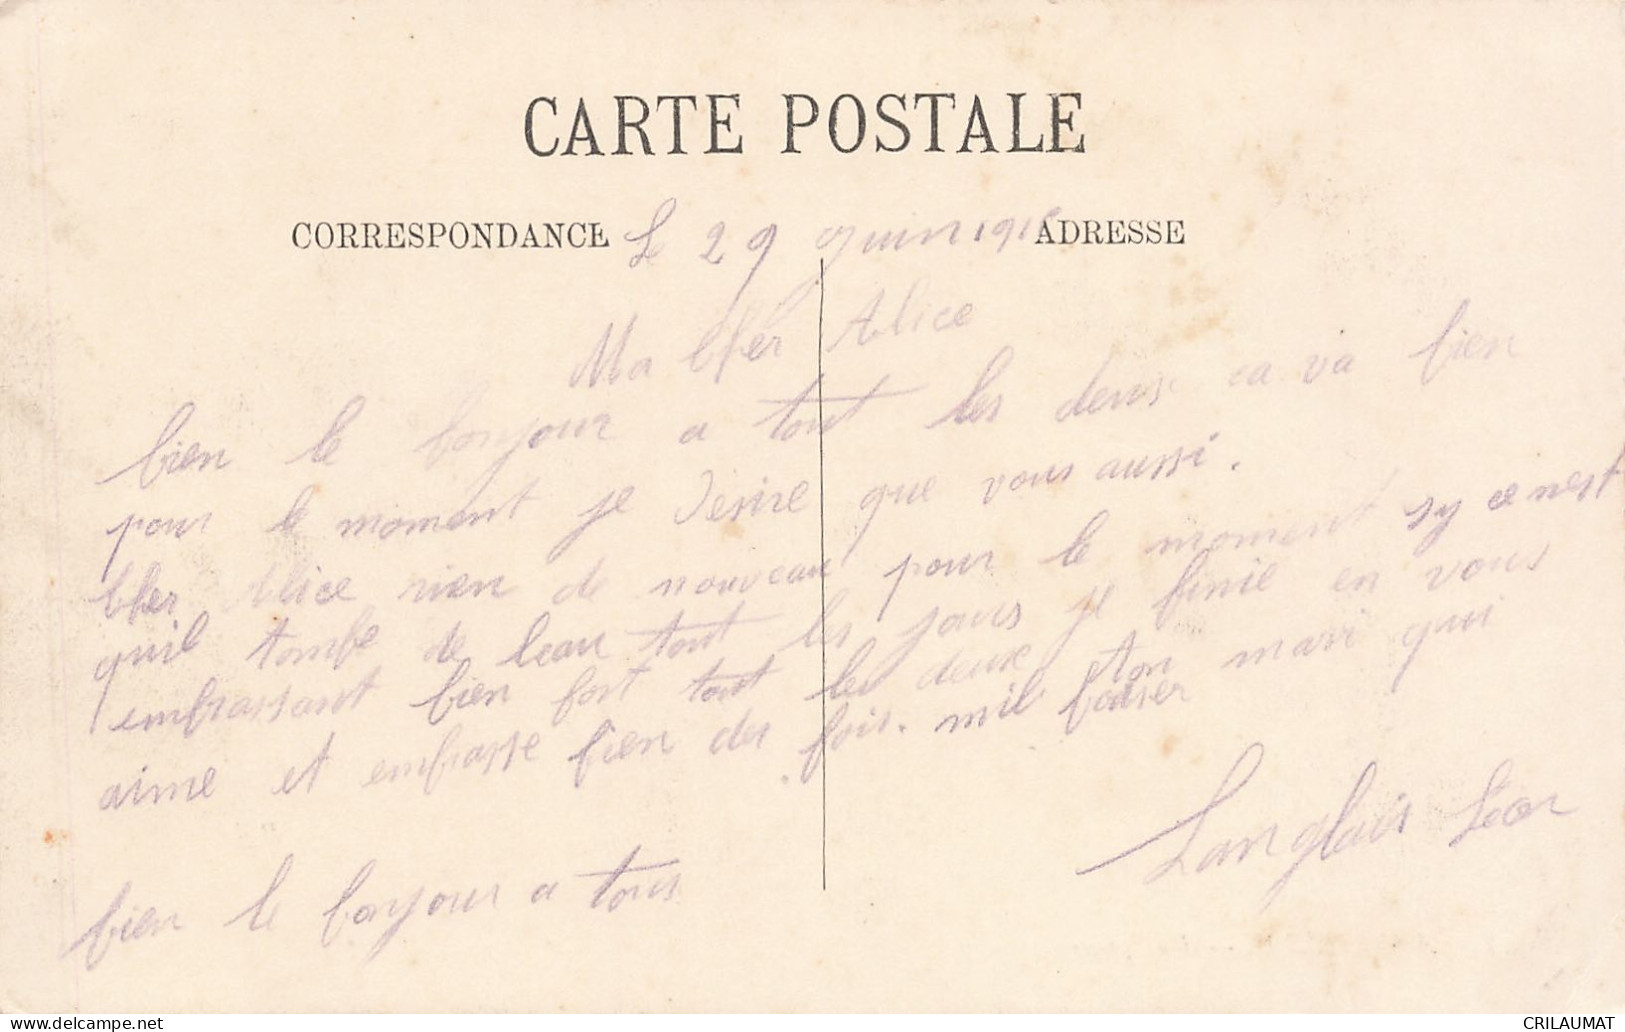 CARTE POSTALE
CORRESPONDANCE
ADRESSE
Le 29 Juin 191
Ma Cher Alice
bien le bonjour a tout les deux ca va bien
pour le moment je desire que vous aussi.
Cher Alice rien de nouveau pour le moment sy ce nest
quil tombe de leau tout les jours je finie en vous
embrassant bien fort tout les deux ton mari qui
aime et embrasse bien des fois. mil baiser
Langlais Léon
bien le bonjour a tous
www.delcampe.net
CRILAUMAT